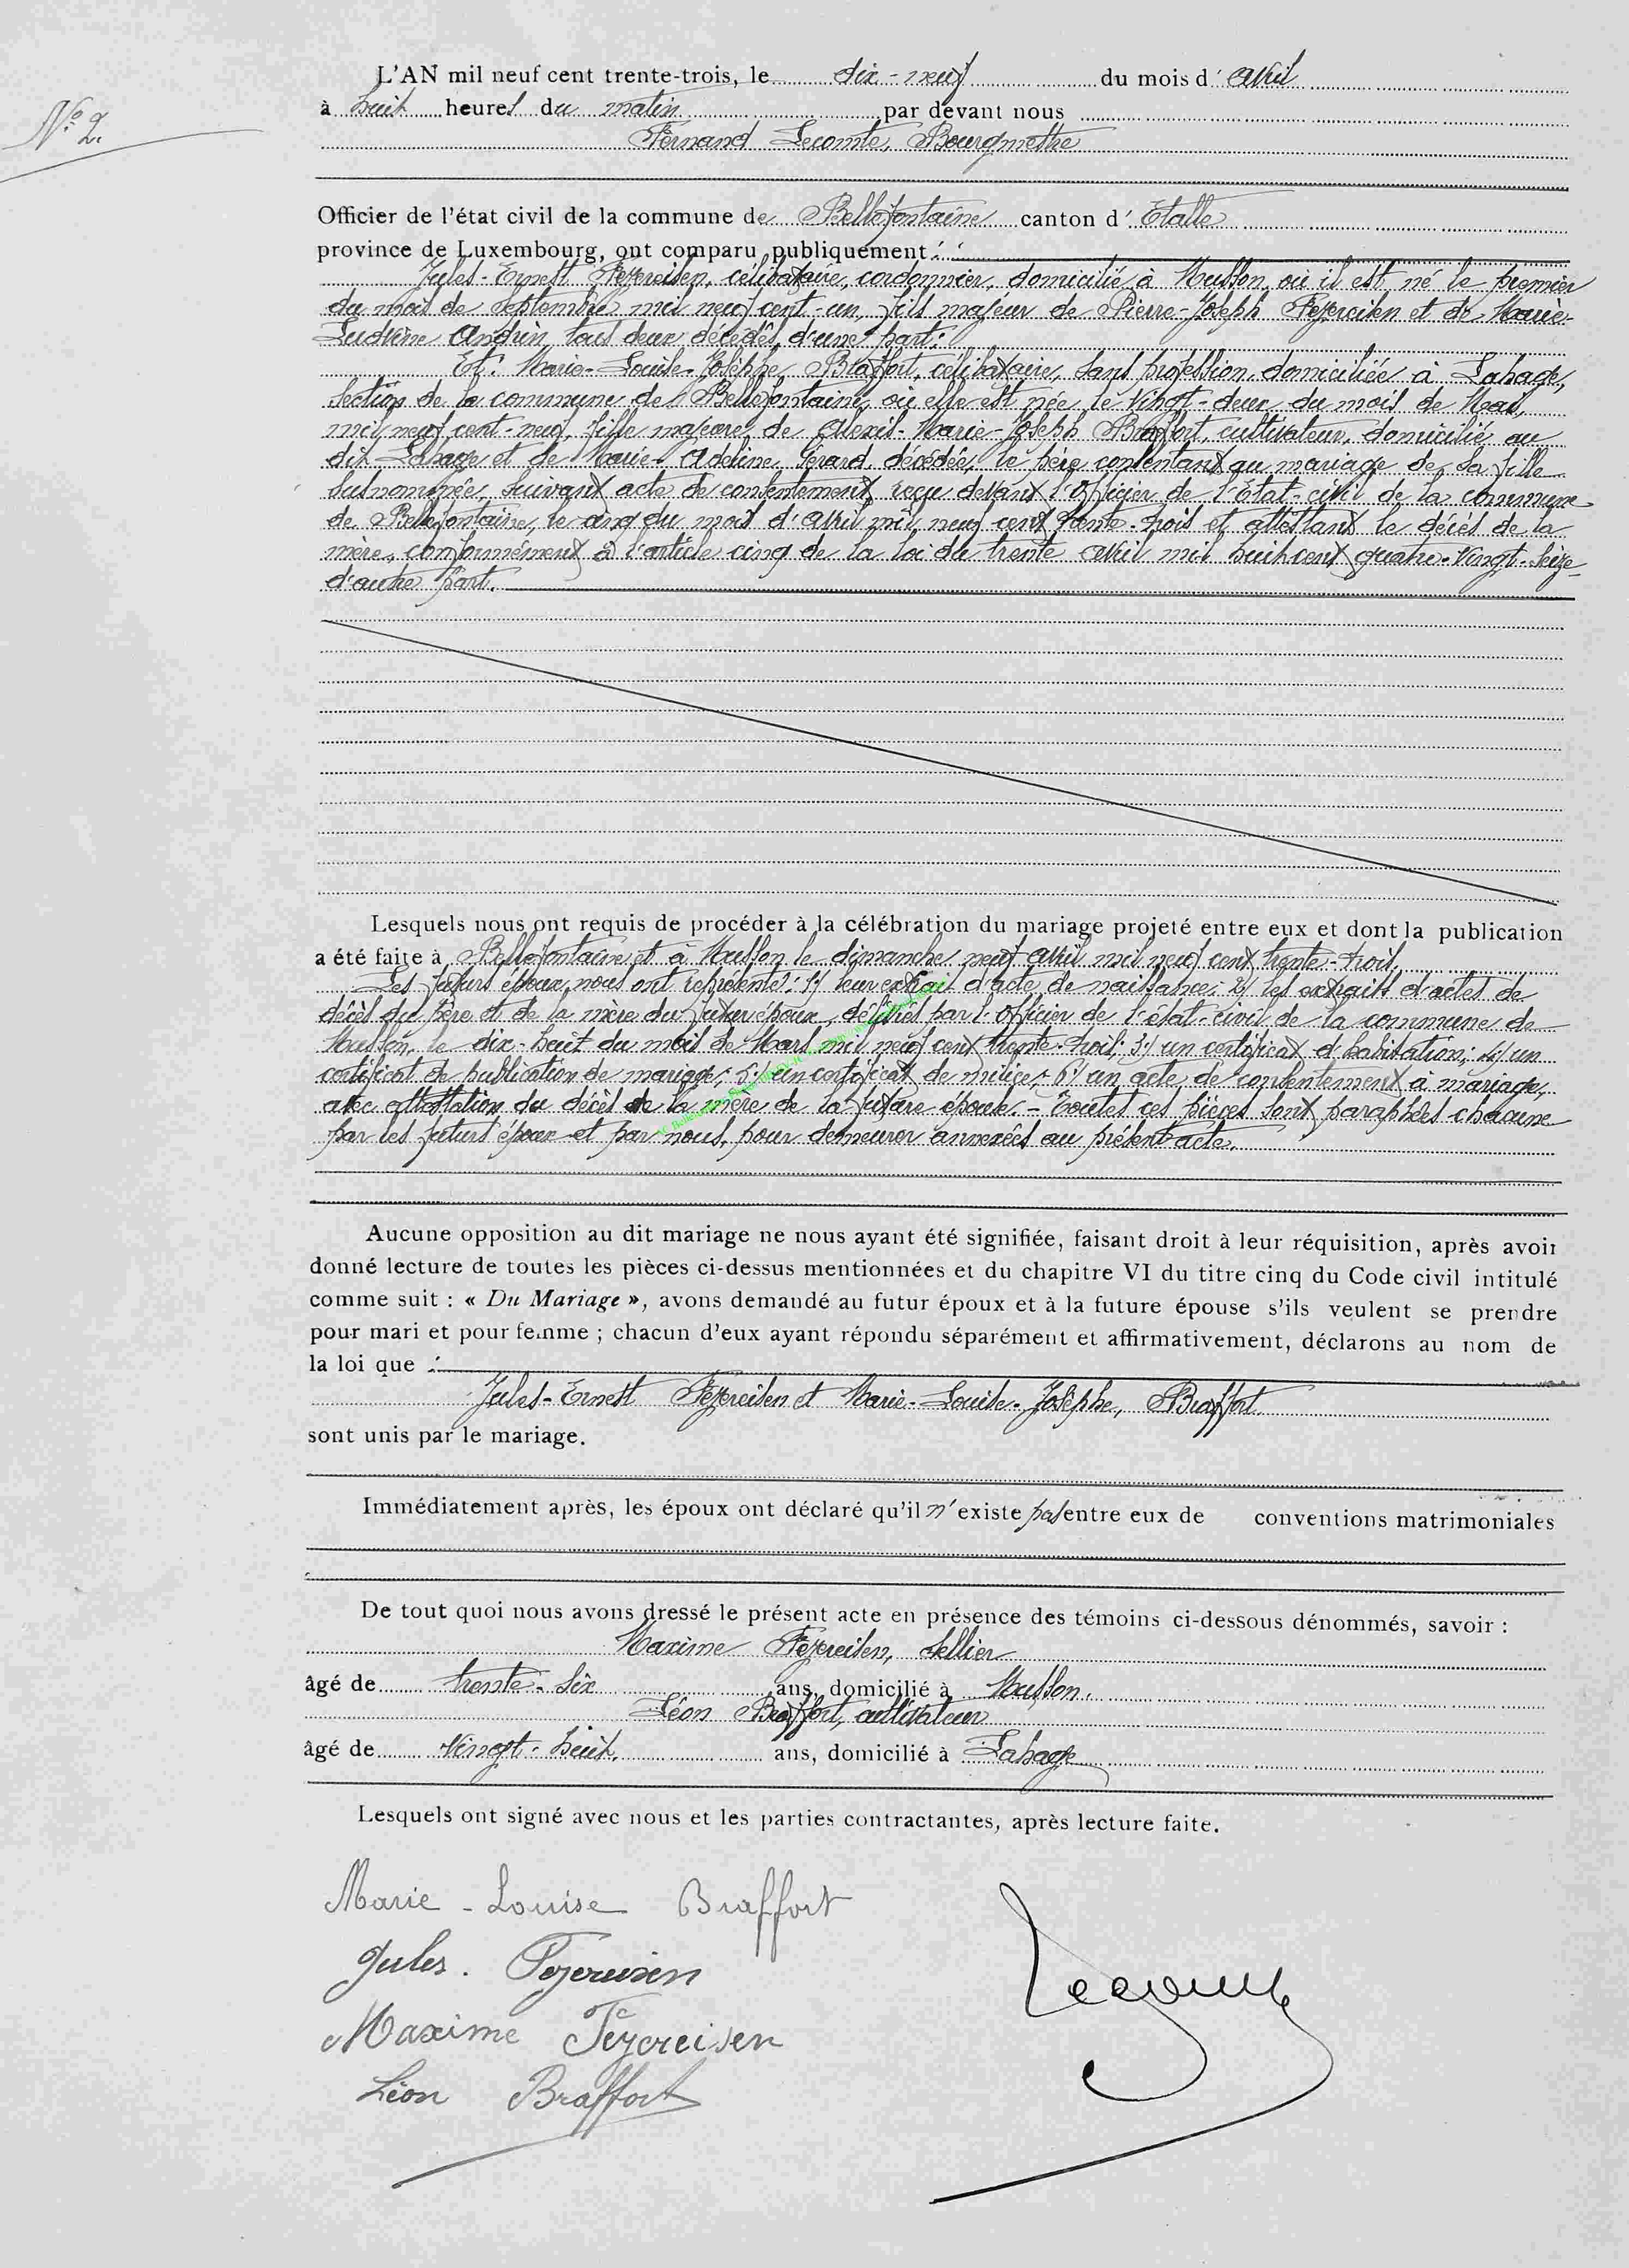 N° 2.
L'AN mil neuf cent trente-trois, le dix-neuf du mois d'avril
à huit heures du matin par devant nous
Fernand Lecomte, Bourgmestre
Officier de l'état civil de la commune de Bellefontaine canton d'Etalle
province de Luxembourg, ont comparu publiquement :
Jules-Ernest Fezereisen, célibataire, cordonnier, domicilié à Musson, où il est né le premier
du mois de septembre mil neuf cent-un, fils majeur de Pierre-Joseph Fezereisen et de Marie-
Ludvine Andrin, tous deux décédés, d'une part;
Et: Marie-Louise-Josèphe, Braffort, célibataire, sans profession, domiciliée à Lahage,
section de la commune de Bellefontaine, où elle est née, le vingt-deux du mois de Mai,
mil neuf cent-neuf, fille majeure de Alexis-Marie-Joseph Braffort, cultivateur, domicilié au
dit Lahage et de Marie-Adeline, Gérard, décédée, le père consentant au mariage de sa fille
susnommée, suivant acte de consentement reçu devant l'Officier de l'Etat-civil de la commune
de Bellefontaine, le cinq du mois d'avril mil neuf cent trente-trois et attestant le décès de la
mère, conformément à l'article cinq de la loi du trente avril mil huit cent quatre-vingt-seize
d'autre part.
Lesquels nous ont requis de procéder à la célébration du mariage projeté entre eux et dont la publication
a été faite à Bellefontaine et à Musson le dimanche neuf avril mil neuf cent trente-trois.
Les futurs époux nous ont représenté: 1°/ leur extrait d'acte de naissance; 2°/ les extraits d'actes de
décès du père et de la mère du futur époux, délivrés par l'Officier de l'état-civil de la commune de
Musson, le dix-huit du mois de Mars mil neuf cent trente-trois; 3°/ un certificat d'habitation; 4°/ un
certificat de publication de mariage; 5°/ un certificat de milice; 6°/ un acte de consentement à mariage,
avec attestation du décès de la mère de la future épouse. - Toutes ces pièces sont paraphées chacune
par les futurs époux et par nous, pour demeurer annexées au présent acte.
Aucune opposition au dit mariage ne nous ayant été signifiée, faisant droit à leur réquisition, après avoir
donné lecture de toutes les pièces ci-dessus mentionnées et du chapitre VI du titre cinq du Code civil intitulé
comme suit : « Du Mariage », avons demandé au futur époux et à la future épouse s'ils veulent se prendre
pour mari et pour femme ; chacun d'eux ayant répondu séparément et affirmativement, déclarons au nom de
la loi que :
Jules-Ernest Fezereisen et Marie-Louise-Josèphe, Braffort
sont unis par le mariage.
Immédiatement après, les époux ont déclaré qu'il n'existe pas entre eux de conventions matrimoniales
De tout quoi nous avons dressé le présent acte en présence des témoins ci-dessous dénommés, savoir :
Maxime Fezereisen, sellier
âgé de trente-six ans, domicilié à Musson.
Léon Braffort, cultivateur
âgé de vingt-huit, ans, domicilié à Lahage
Lesquels ont signé avec nous et les parties contractantes, après lecture faite.
Marie-Louise Braffort
Jules. Fezereisen
Maxime Fezereisen
Léon Braffort
Lecomte